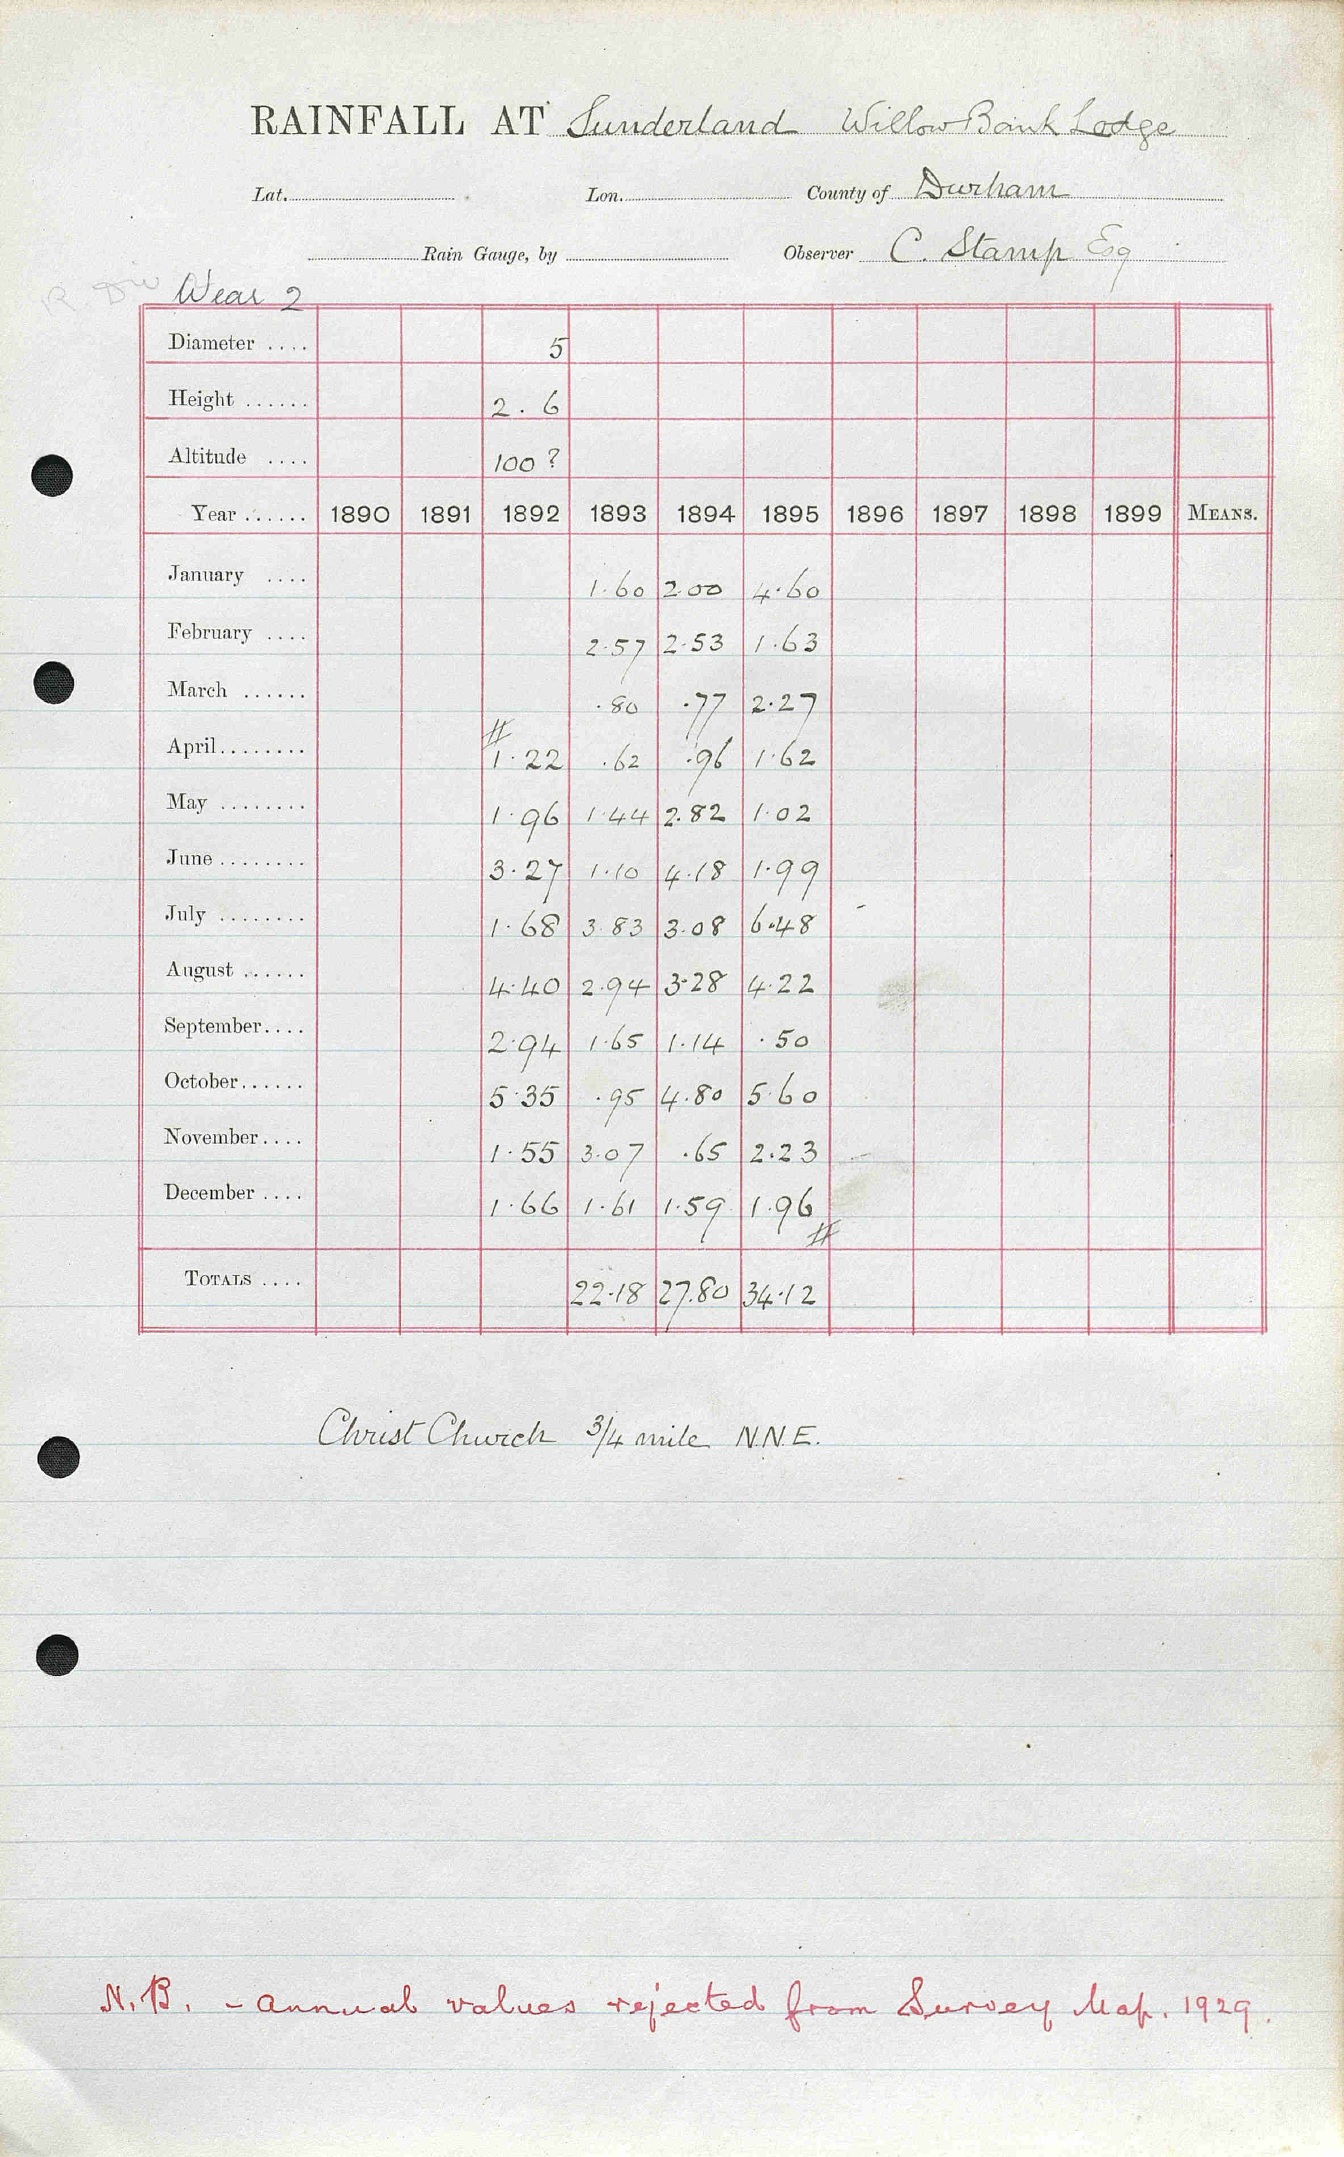 RAINFALL AT Sunderland Willow Bank Lodge
Lat. Lon. County of Durham
Rain Gauge, by Observer C. Stamp Esq
Wear 2
Diameter .... 5
Height ...... 2. 6
Altitude .... 100?
Year ...... 1890 1891 1892 1893 1894 1895 1896 1897 1898 1899 MEANS.
January .... 1.60 2.00 4.60
February .... 2.57 2.53 1.63
March ...... .80 .77 2.27
April........ 1.22 .62 .96 1.62
May ........ 1.96 1.44 2.82 1.02
June ........ 3.27 1.10 4.18 1.99
July ........ 1.68 3.83 3.08 6.48
August ...... 4.40 2.94 3.28 4.22
September.... 2.94 1.65 1.14 .50
October...... 5.35 .95 4.80 5.60
November.... 1.55 3.07 .65 2.23
December .... 1.66 1.61 1.59 1.96
TOTALS .... 22.18 27.80 34.12
Christ Church 3/4 mile N.N.E.
N.B. - annual values rejected from Survey Map. 1929.